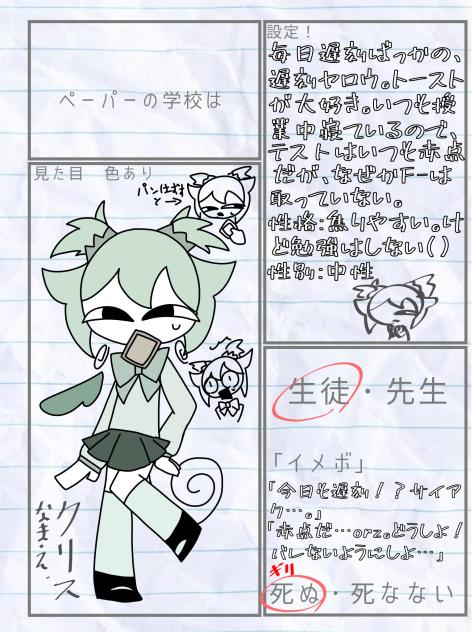 ペーパーの学校は
見た目　色あり
パンはずすと→
クリス
なまえ
設定！
毎日遅刻ばっかの、
遅刻ヤロウ。トースト
が大好き。いつも授
業中寝ているので、
テストはいつも赤点
だが、なぜかF－は
取っていない。
性格:焦りやすい。け
ど勉強はしない()
性別:中性
生徒・先生
「イメボ」
「今日も遅刻！？サイア
ク…。」
「赤点だ…orz。どうしよ！
バレないようにしよ…」
ギリ
死ぬ・死なない